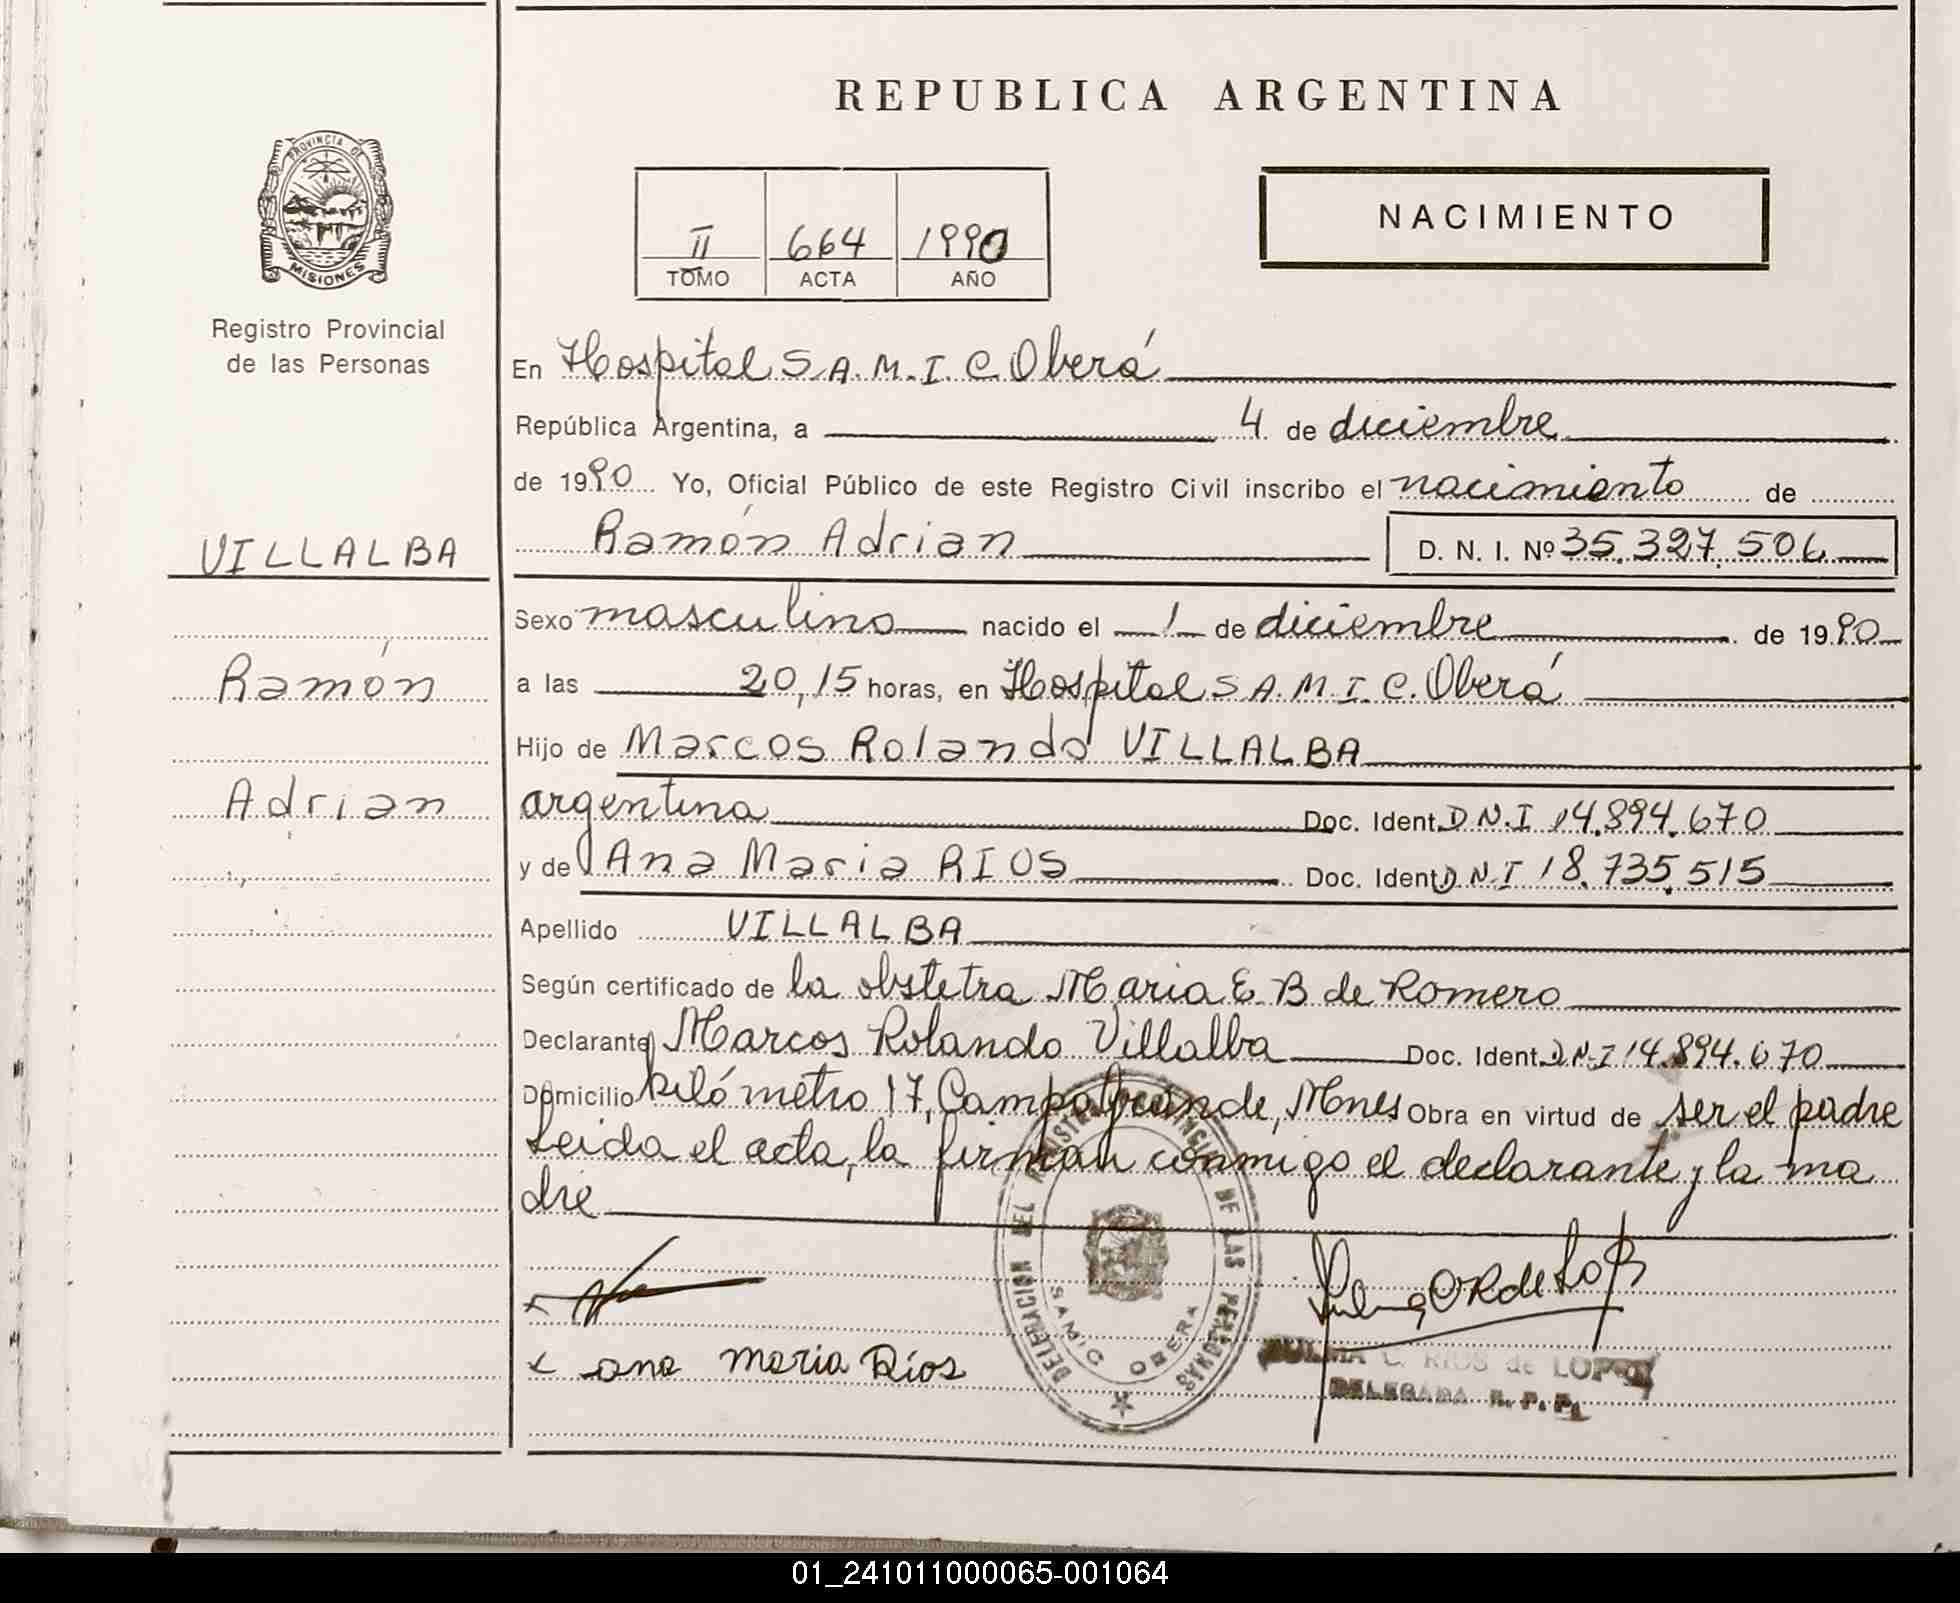 REPUBLICA ARGENTINA
PROVINCIA DE
MISIONES
Registro Provincial
de las Personas
II 664 1990
TOMO ACTA AÑO
NACIMIENTO
En Hospital S.A.M.I.C. Oberá
República Argentina, a 4 de diciembre
de 1990 Yo, Oficial Público de este Registro Civil inscribo el nacimiento de
VILLALBA
Ramón Adrian D. N. I. Nº 35.327.506
Sexo masculino nacido el 1 de diciembre de 1990
Ramón
a las 20,15 horas, en Hospital S.A.M.I.C. Oberá
Hijo de Marcos Rolando VILLALBA
Adrian
argentina Doc. Ident. D.N.I 14.894.670
y de Ana Maria RIOS Doc. Ident. D.N.I 18.735.515
Apellido VILLALBA
Según certificado de la obstetra Maria E. B de Romero
Declarante Marcos Rolando Villalba Doc. Ident. D.N.I 14.894.670
Domicilio kilómetro 17, Campo Grande, Mnes Obra en virtud de ser el padre
Leida el acta, la firman conmigo el declarante y la ma
dre
DELEGACION DEL REGISTRO PROVINCIAL DE LAS PERSONAS
SAMIC OBERA
x ana maria Ríos
ZULMA C. RIOS de LOPEZ
DELEGADA R. P. P.
01_241011000065-001064